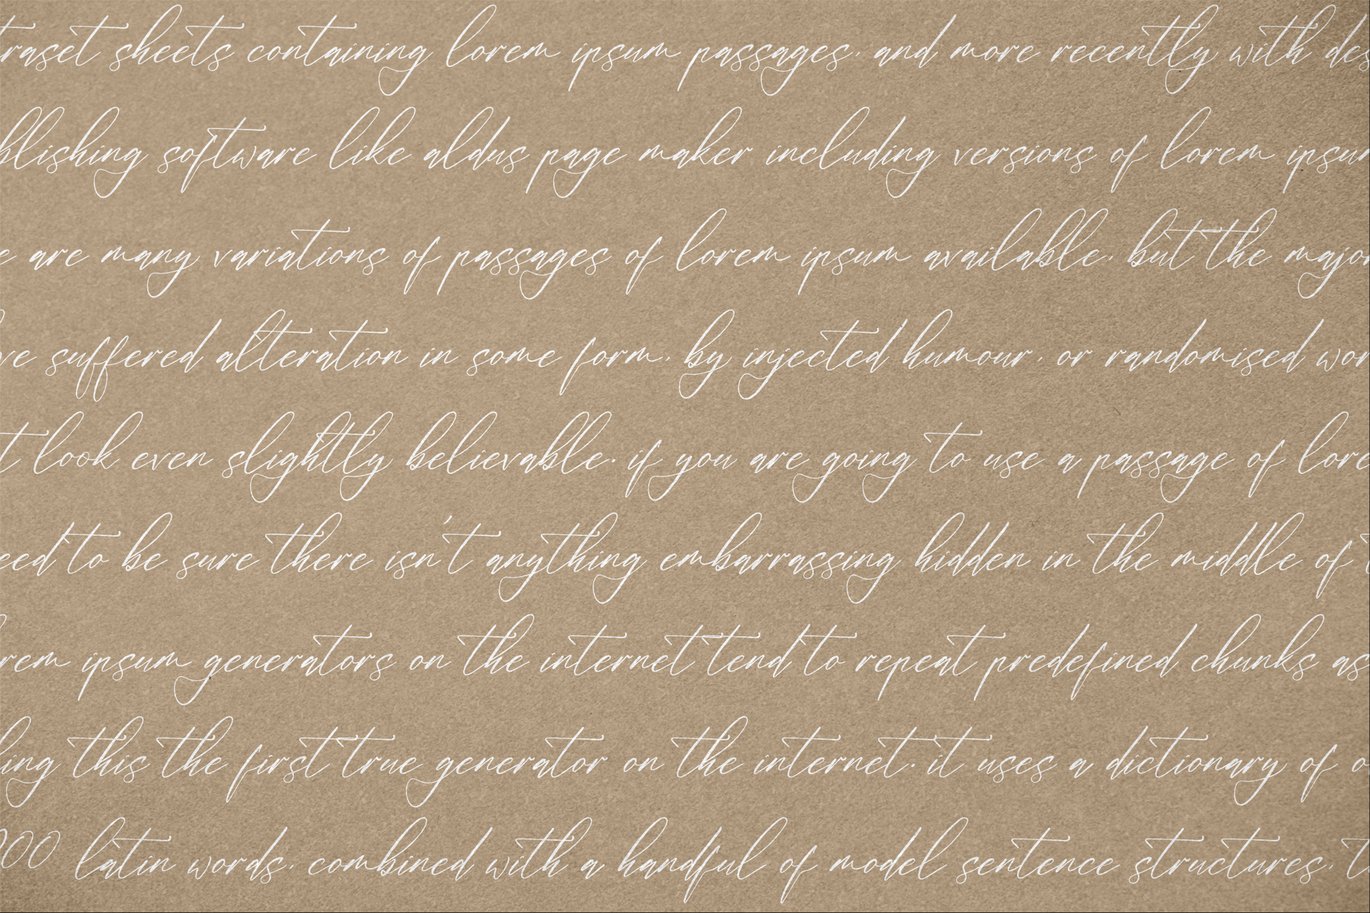 raset sheets containing lorem ipsum passages, and more recently with des
blishing software like aldus page maker including versions of lorem ipsu
e are many variations of passages of lorem ipsum available, but the major
ve suffered alteration in some form, by injected humour, or randomised wor
t look even slightly believable. if you are going to use a passage of lore
eed to be sure there isn't anything embarrassing hidden in the middle of t
rem ipsum generators on the internet tend to repeat predefined chunks as
ing this the first true generator on the internet. it uses a dictionary of o
00 latin words, combined with a handful of model sentence structures, t